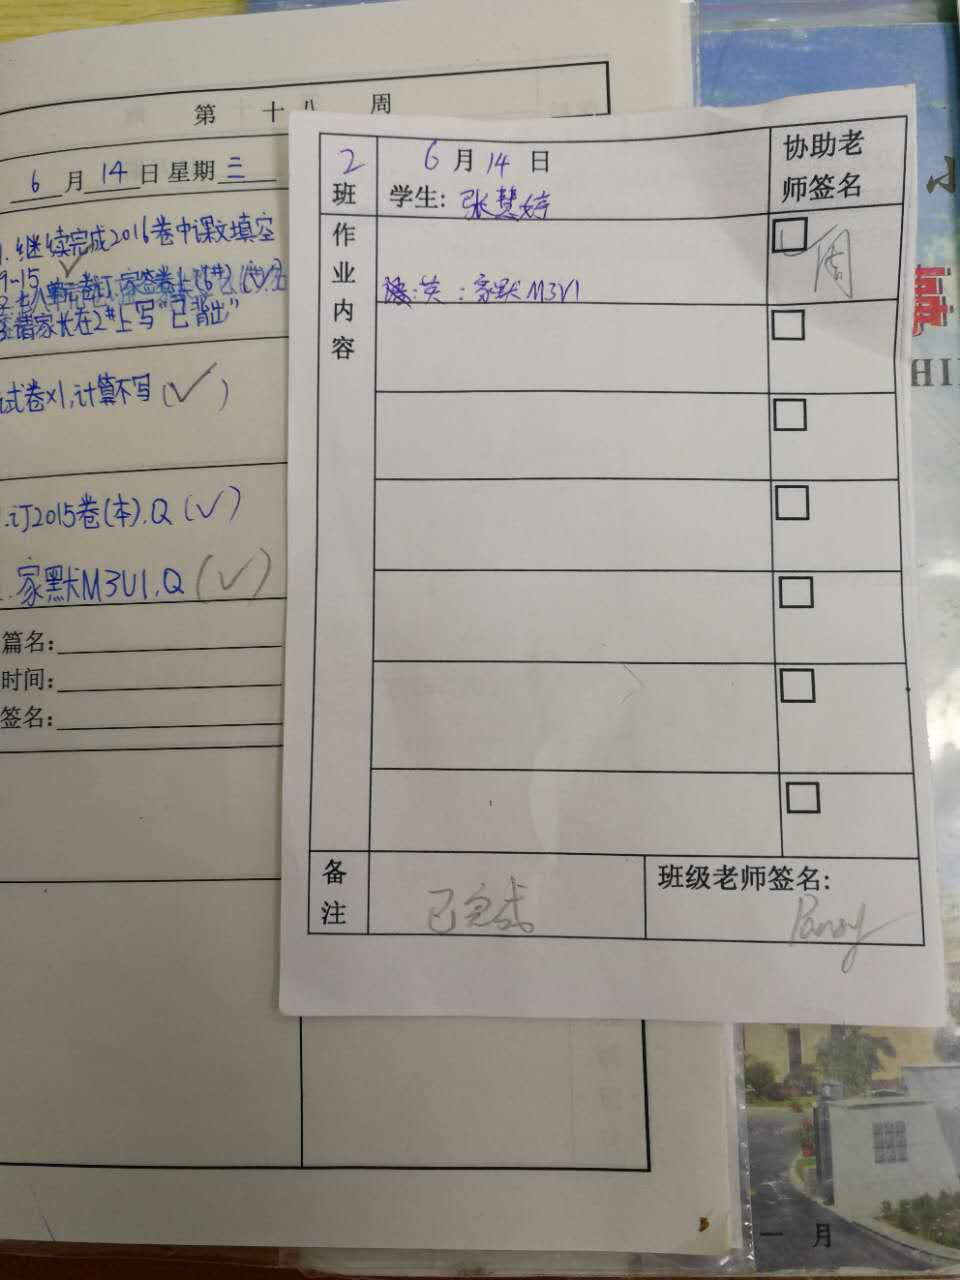 第 十八 周
6 月 14 日 星期 三
1. 继续完成2016卷中课文填空
9~15
请家长在2#上写"已背出"
试卷×1,计算不写(✓)
1.订2015卷(本).Q(✓)
2.家默M3U1.Q(✓)
篇名:
时间:
签名:
2 班
6 月 14 日
学生: 张慧婷
协助老
师签名
作业内容
英:家默M3U1
周
备注
已完成
班级老师签名:
Penny
小
一 月